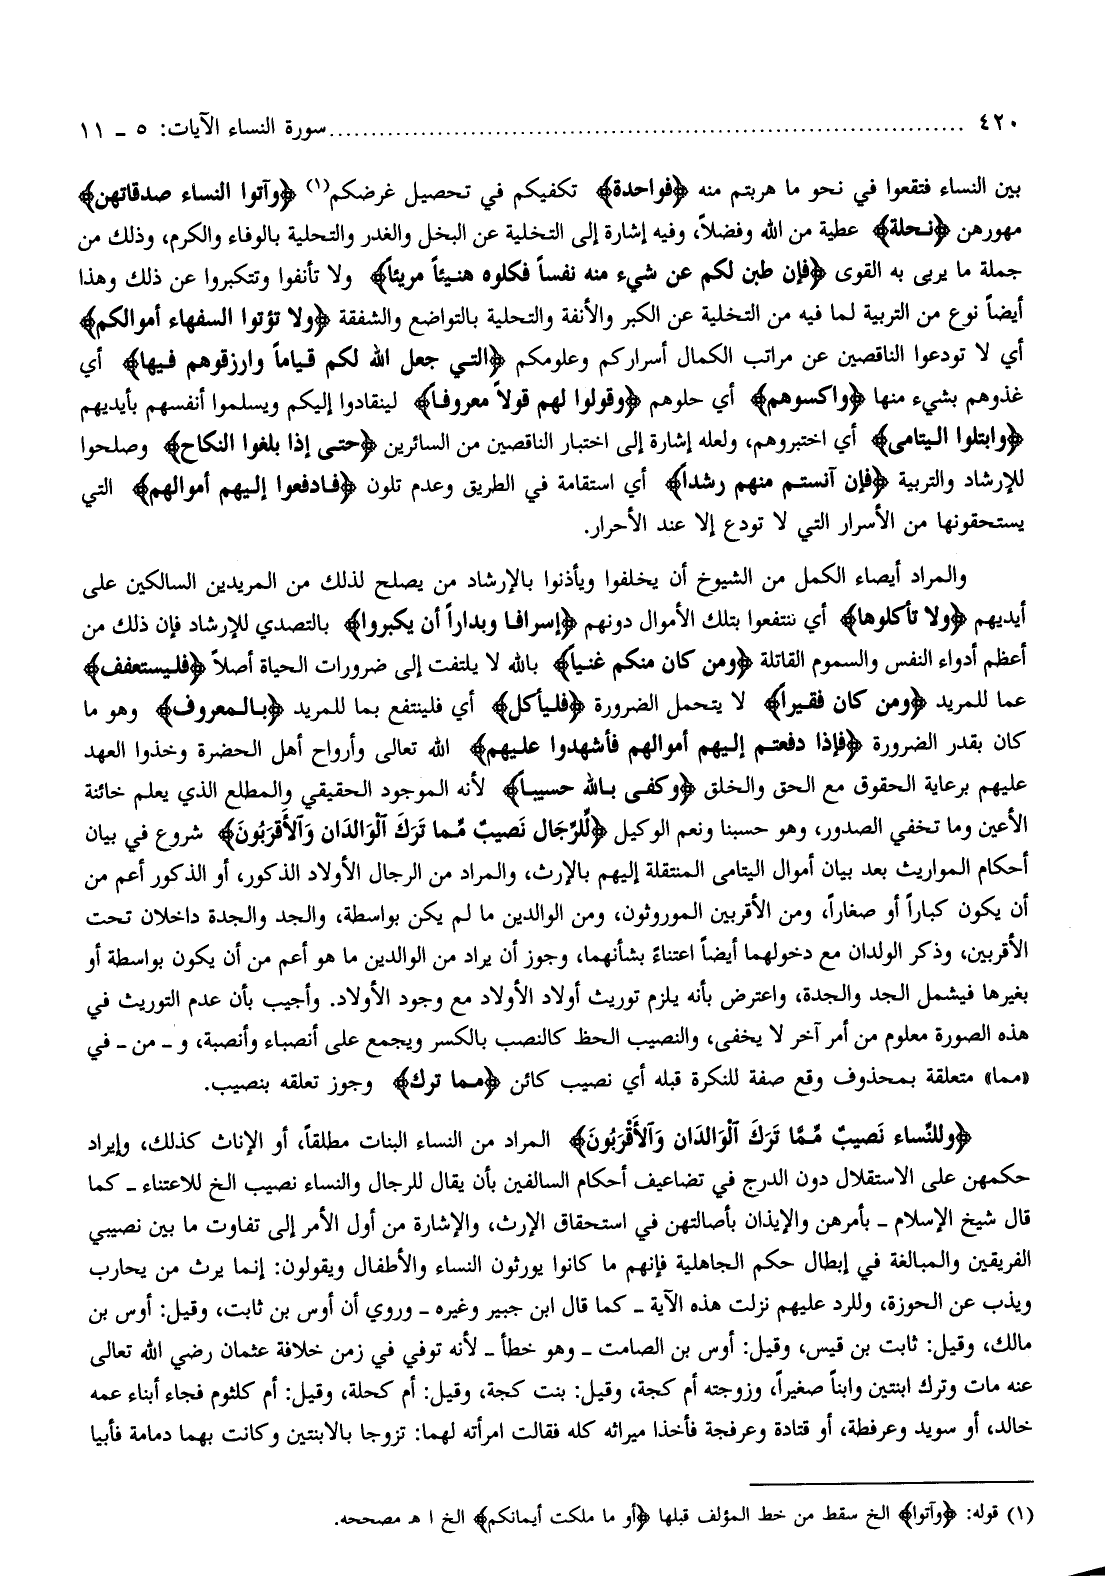 ٤٢٠ .......................................................... سورة النساء الآيات: ٥ ـ ١١
بين النساء فتقعوا في نحو ما هربتم منه ﴿فواحدة﴾ تكفيكم في تحصيل غرضكم(١) ﴿وآتوا النساء صدقاتهن﴾
مهورهن ﴿نحلة﴾ عطية من الله وفضلاً، وفيه إشارة إلى التخلية عن البخل والغدر والتحلية بالوفاء والكرم، وذلك من
جملة ما يربى به القوى ﴿فإن طبن لكم عن شيء منه نفساً فكلوه هنيئاً مريئاً﴾ ولا تأنفوا وتتكبروا عن ذلك وهذا
أيضاً نوع من التربية لما فيه من التخلية عن الكبر والأنفة والتحلية بالتواضع والشفقة ﴿ولا تؤتوا السفهاء أموالكم﴾
أي لا تودعوا الناقصين عن مراتب الكمال أسراركم وعلومكم ﴿التي جعل الله لكم قياماً وارزقوهم فيها﴾ أي
غذوهم بشيء منها ﴿واكسوهم﴾ أي حلوهم ﴿وقولوا لهم قولاً معروفاً﴾ لينقادوا إليكم ويسلموا أنفسهم بأيديهم
﴿وابتلوا اليتامى﴾ أي اختبروهم، ولعله إشارة إلى اختبار الناقصين من السائرين ﴿حتى إذا بلغوا النكاح﴾ وصلحوا
للإرشاد والتربية ﴿فإن آنستم منهم رشداً﴾ أي استقامة في الطريق وعدم تلون ﴿فادفعوا إليهم أموالهم﴾ التي
يستحقونها من الأسرار التي لا تودع إلا عند الأحرار.
والمراد أيصاء الكمل من الشيوخ أن يخلفوا ويأذنوا بالإرشاد من يصلح لذلك من المريدين السالكين على
أيديهم ﴿ولا تأكلوها﴾ أي ننتفعوا بتلك الأموال دونهم ﴿إسرافا وبداراً أن يكبروا﴾ بالتصدي للإرشاد فإن ذلك من
أعظم أدواء النفس والسموم القاتلة ﴿ومن كان منكم غنياً﴾ بالله لا يلتفت إلى ضرورات الحياة أصلاً ﴿فليستعفف﴾
عما للمريد ﴿ومن كان فقيراً﴾ لا يتحمل الضرورة ﴿فليأكل﴾ أي فلينتفع بما للمريد ﴿بالمعروف﴾ وهو ما
كان بقدر الضرورة ﴿فإذا دفعتم إليهم أموالهم فأشهدوا عليهم﴾ الله تعالى وأرواح أهل الحضرة وخذوا العهد
عليهم برعاية الحقوق مع الحق والخلق ﴿وكفى بالله حسيبا﴾ لأنه الموجود الحقيقي والمطلع الذي يعلم خائنة
الأعين وما تخفي الصدور، وهو حسبنا ونعم الوكيل ﴿لِّلرِّجَال نَصيبٌ مِّما تَرَكَ ٱلْوَالدَان وَٱلأَقْرَبُونَ﴾ شروع في بيان
أحكام المواريث بعد بيان أموال اليتامى المنتقلة إليهم بالإرث، والمراد من الرجال الأولاد الذكور، أو الذكور أعم من
أن يكون كباراً أو صغاراً، ومن الأقربين الموروثون، ومن الوالدين ما لم يكن بواسطة، والجد والجدة داخلان تحت
الأقربين، وذكر الولدان مع دخولهما أيضاً اعتناءً بشأنهما، وجوز أن يراد من الوالدين ما هو أعم من أن يكون بواسطة أو
بغيرها فيشمل الجد والجدة، واعترض بأنه يلزم توريث أولاد الأولاد مع وجود الأولاد. وأجيب بأن عدم التوريث في
هذه الصورة معلوم من أمر آخر لا يخفى، والنصيب الحظ كالنصب بالكسر ويجمع على أنصباء وأنصبة، و ـ من ـ في
«مما» متعلقة بمحذوف وقع صفة للنكرة قبله أي نصيب كائن ﴿مما ترك﴾ وجوز تعلقه بنصيب.
﴿وللنِّساء نَصيبٌ مِّمَّا تَرَكَ ٱلْوَالدَان وَٱلأَقْرَبُونَ﴾ المراد من النساء البنات مطلقاً، أو الإناث كذلك، وإيراد
حكمهن على الاستقلال دون الدرج في تضاعيف أحكام السالفين بأن يقال للرجال والنساء نصيب الخ للاعتناء ـ كما
قال شيخ الإسلام ـ بأمرهن والإيذان بأصالتهن في استحقاق الإرث، والإشارة من أول الأمر إلى تفاوت ما بين نصيبي
الفريقين والمبالغة في إبطال حكم الجاهلية فإنهم ما كانوا يورثون النساء والأطفال ويقولون: إنما يرث من يحارب
ويذب عن الحوزة، وللرد عليهم نزلت هذه الآية ـ كما قال ابن جبير وغيره ـ وروي أن أوس بن ثابت، وقيل: أوس بن
مالك، وقيل: ثابت بن قيس، وقيل: أوس بن الصامت ـ وهو خطأ ـ لأنه توفي في زمن خلافة عثمان رضي الله تعالى
عنه مات وترك ابنتين وابناً صغيراً، وزوجته أم كجة، وقيل: بنت كجة، وقيل: أم كحلة، وقيل: أم كلثوم فجاء أبناء عمه
خالد، أو سويد وعرفطة، أو قتادة وعرفجة فأخذا ميراثه كله فقالت امرأته لهما: تزوجا بالابنتين وكانت بهما دمامة فأبيا
(١) قوله: ﴿وآتوا﴾ الخ سقط من خط المؤلف قبلها ﴿أو ما ملكت أيمانكم﴾ الخ ا هـ مصححه.